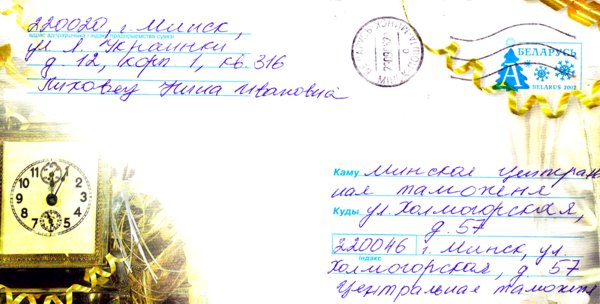 220020, г. Минск,
ул Л. Украинки
д. 12, корп 1, кв. 316
Лиховец Нина Ивановна
БЕЛАРУСЬ
A
BELARUS 2012
МИНСК
Каму Минская централь
ная таможеня
Куды ул. Холмогорская,
д. 57
220046 г. Минск, ул.
індэкс
Холмогорской, д 57
Центральная таможня
12
1
2
3
4
5
6
7
8
9
10
11